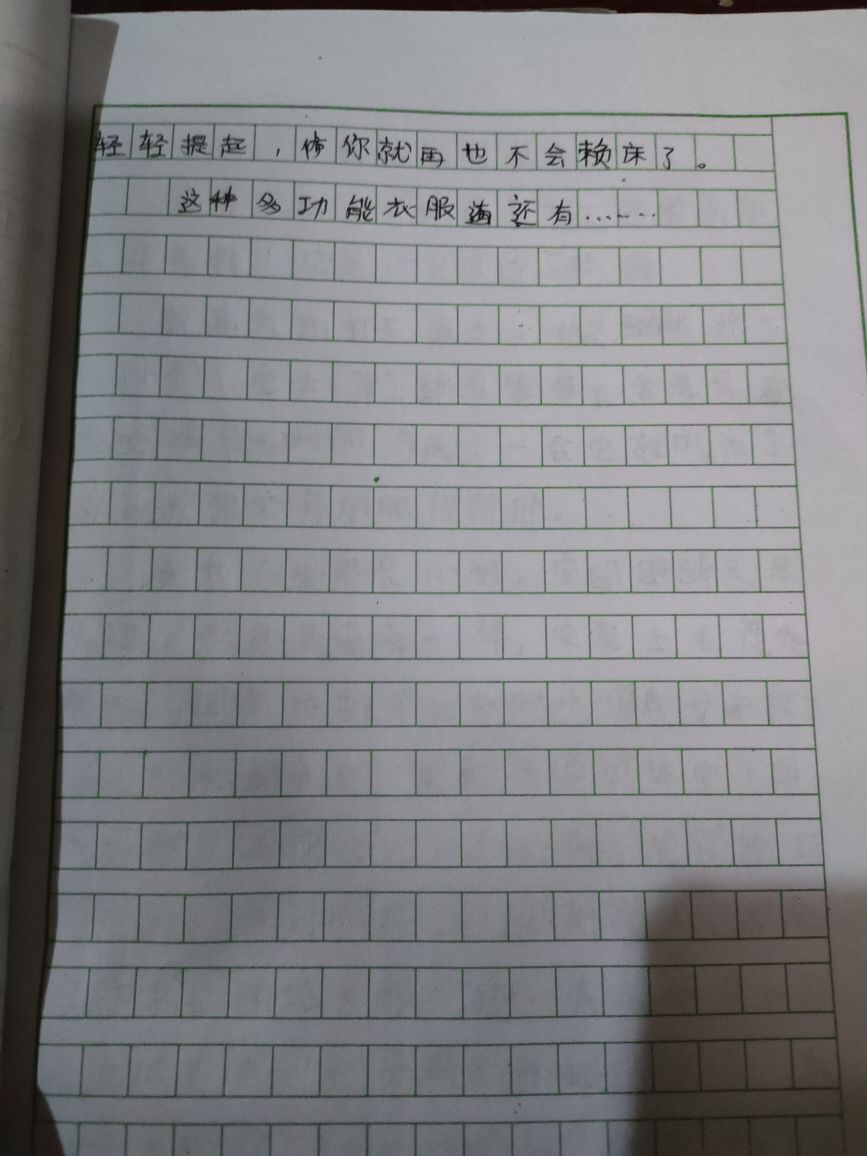 轻轻提起，你就再也不会赖床了。
这种多功能衣服还有……